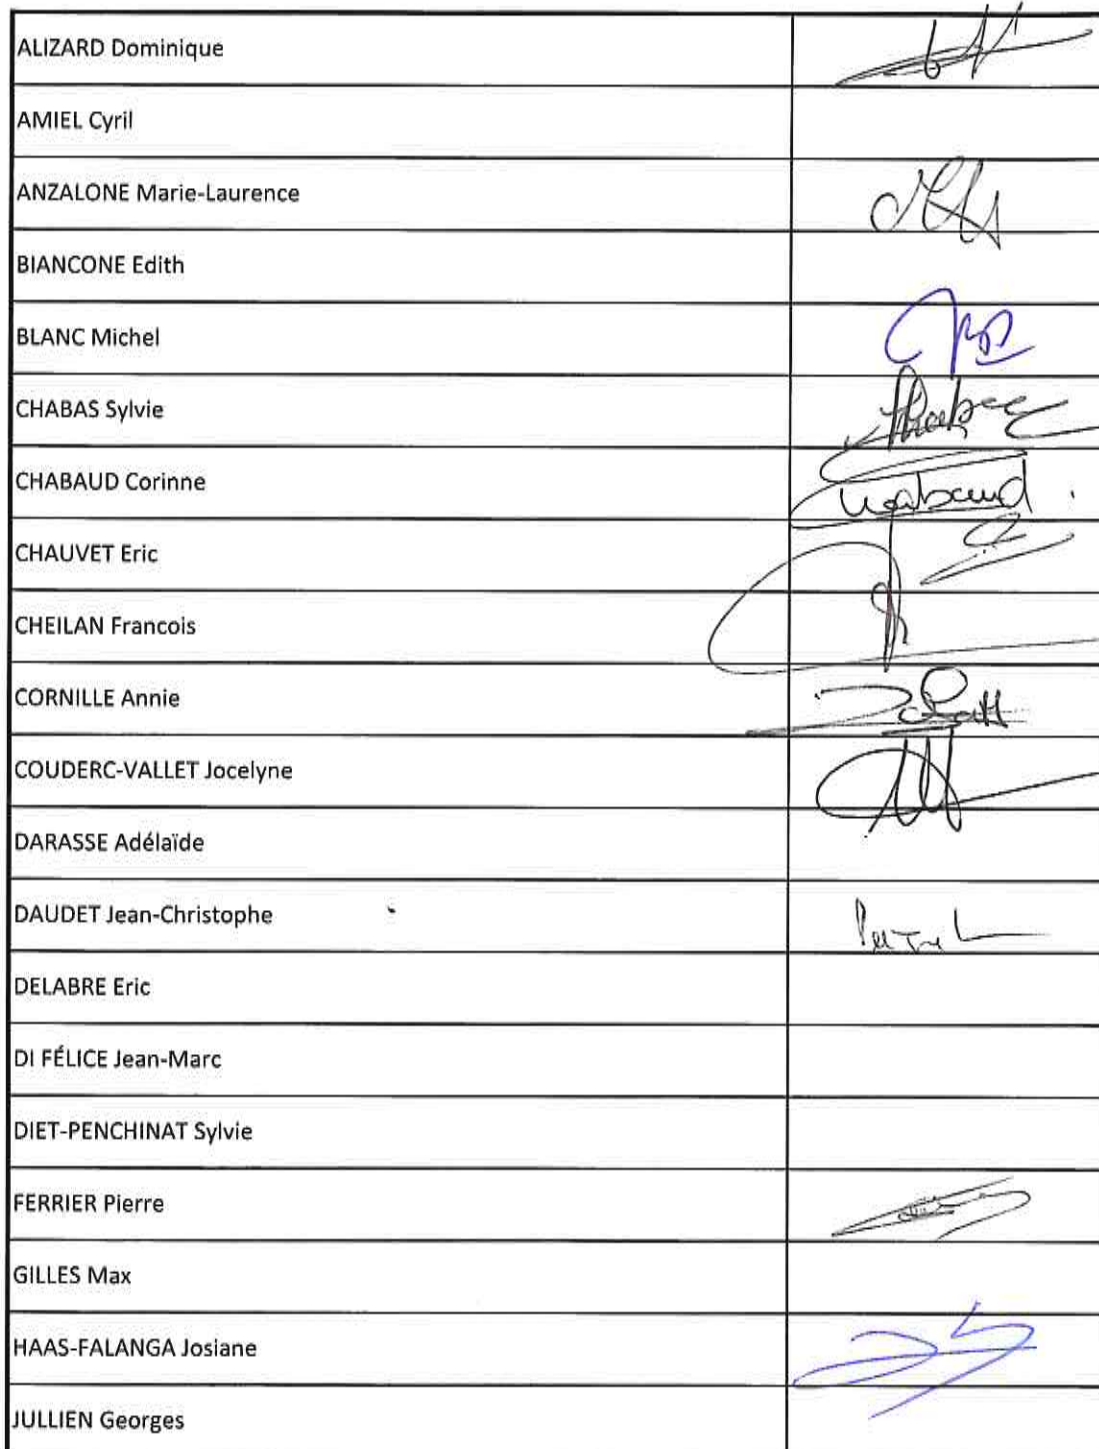 ALIZARD Dominique
AMIEL Cyril
ANZALONE Marie-Laurence
BIANCONE Edith
BLANC Michel
CHABAS Sylvie
CHABAUD Corinne
CHAUVET Eric
CHEILAN Francois
CORNILLE Annie
COUDERC-VALLET Jocelyne
DARASSE Adélaïde
DAUDET Jean-Christophe
DELABRE Eric
DI FÉLICE Jean-Marc
DIET-PENCHINAT Sylvie
FERRIER Pierre
GILLES Max
HAAS-FALANGA Josiane
JULLIEN Georges